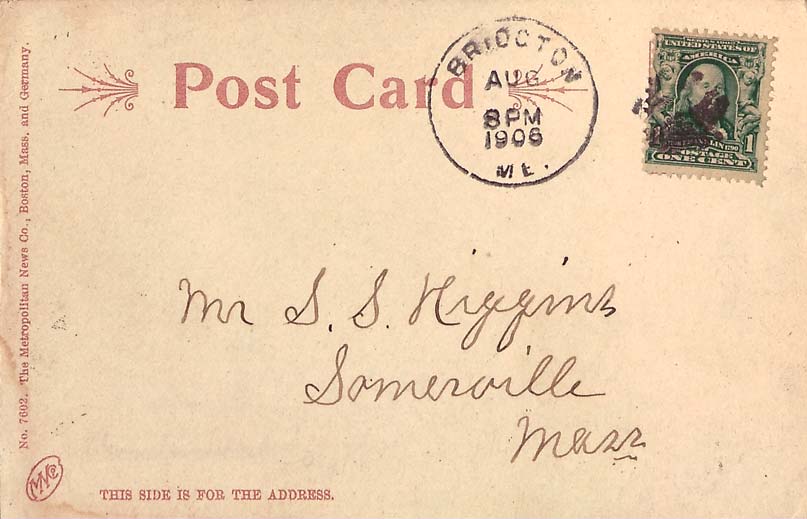 Post Card
BRIDGTON
AUG
8 PM
1906
ME.
SERIES 1902
UNITED STATES OF
AMERICA
1
POSTAGE
ONE CENT
Mr S. S. Higgins
Somerville
Mass
No. 7602. The Metropolitan News Co., Boston, Mass. and Germany.
THIS SIDE IS FOR THE ADDRESS.